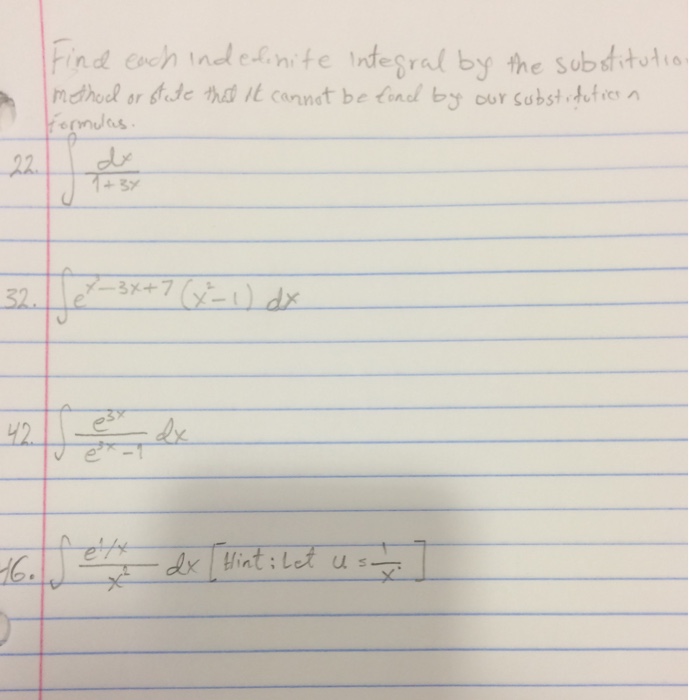 Find each indefinite integral by the substitutio
method or state that it cannot be fond by our substitution
formulas.
22. ∫ dx / 1+3x
32. ∫ e^x³-3x+7 (x²-1) dx
42. ∫ e^3x / e^3x -1 dx
46. ∫ e^1/x / x² dx [Hint: Let u = 1/x]